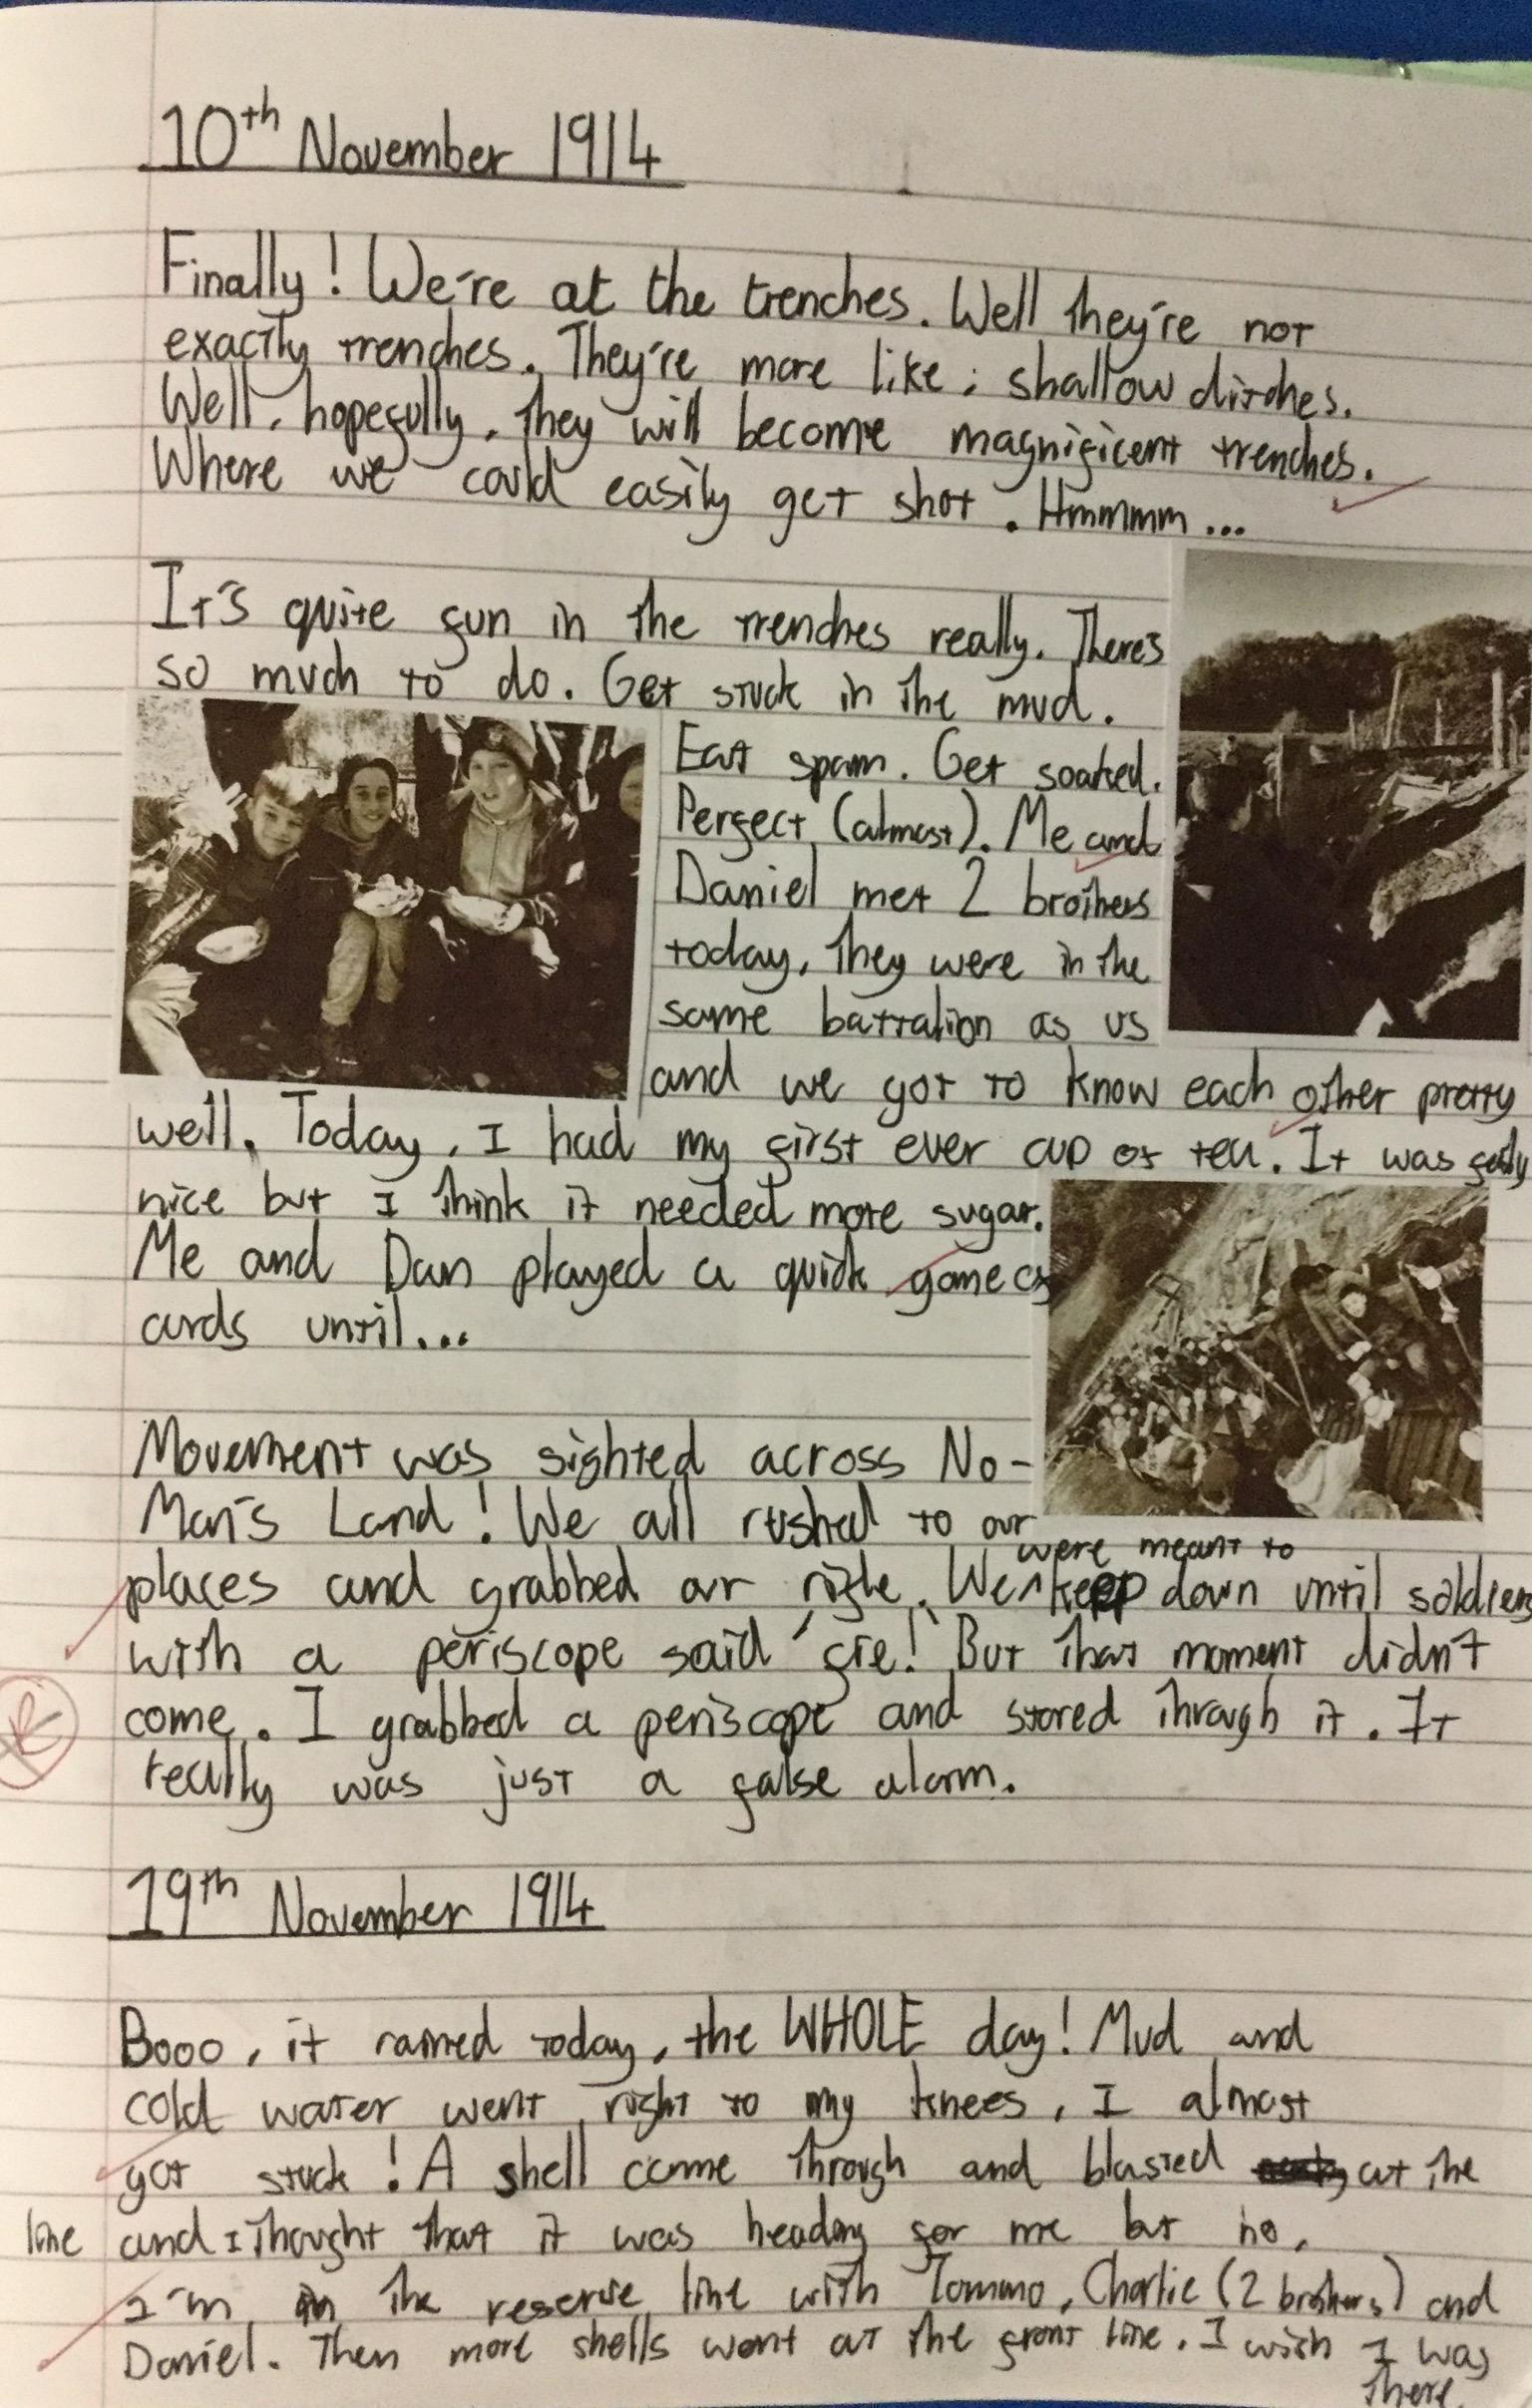 10th November 1914
Finally! We're at the trenches. Well they're not
exactly trenches. They're more like; shallow ditches.
Well, hopefully, they will become magnificent trenches.
Where we could easily get shot. Hmmmm...
It's quite fun in the trenches really. There's
so much to do. Get stuck in the mud.
Eat spam. Get soaked.
Perfect (almost). Me and
Daniel met 2 brothers
today, they were in the
same battalion as us
and we got to know each other pretty
well. Today, I had my first ever cup of tea. It was
nice but I think it needed more sugar.
Me and Dan played a quick game of
cards until...
Movement was sighted across No-
Man's Land! We all rushed to our
were meant to
places and grabbed our rifle. We keep down until soldiers
with a periscope said 'fire!' But that moment didn't
come. I grabbed a periscope and stared through it. It
really was just a false alarm.
19th November 1914
Booo, it rained today, the WHOLE day! Mud and
cold water went right to my knees, I almost
got stuck! A shell came through and blasted at the
line and I thought that it was heading for me but no,
I'm in the reserve line with Tommo, Charlie (2 brothers) and
Daniel. Then more shells went at the front line. I wish I was
there